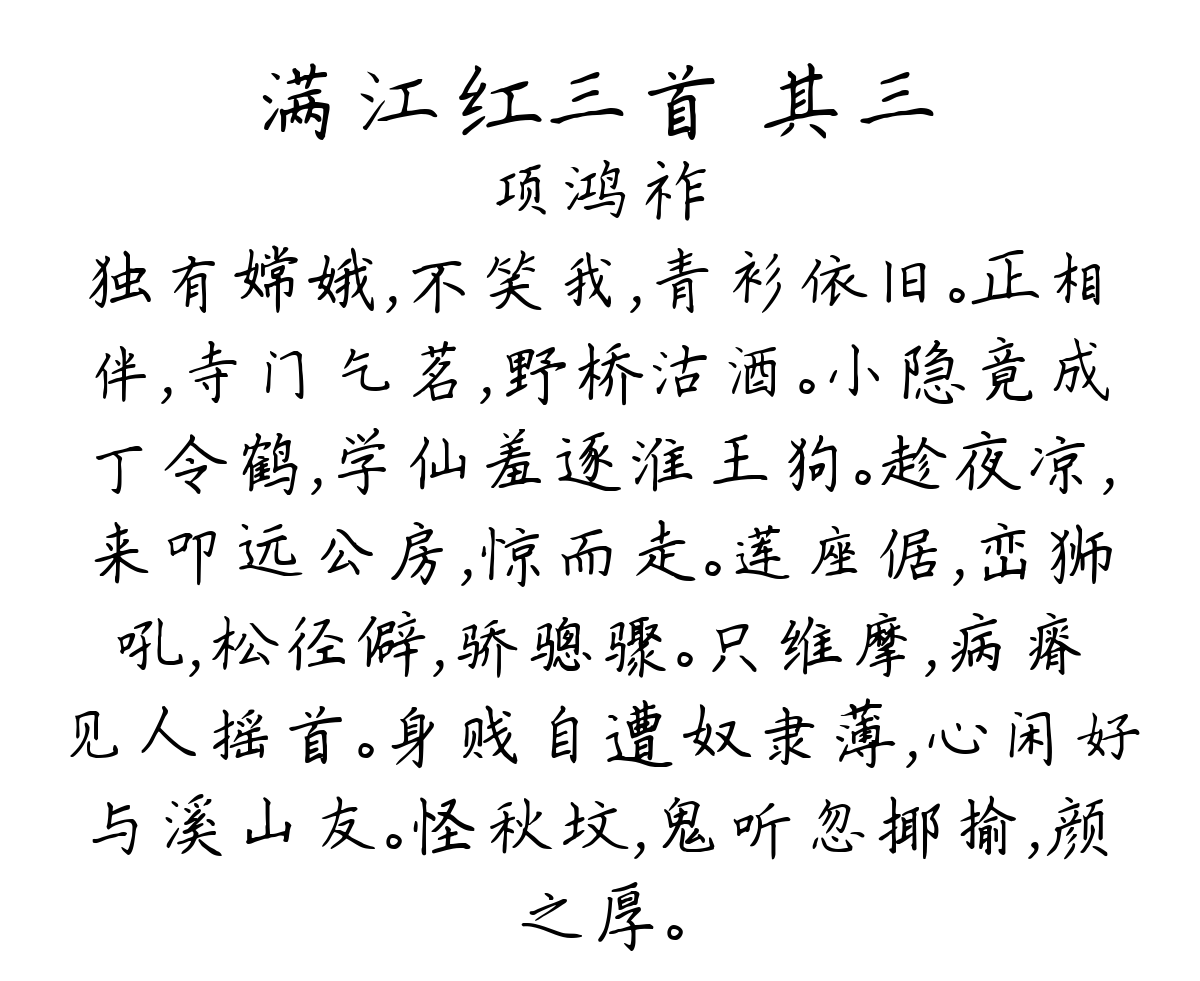 满江红三首 其三
项鸿祚
独有嫦娥,不笑我,青衫依旧。正相
伴,寺门乞茗,野桥沽酒。小隐竟成
丁令鹤,学仙羞逐淮王狗。趁夜凉,
来叩远公房,惊而走。莲座倨,峦狮
吼,松径僻,骄骢骤。只维摩,病瘠
见人摇首。身贱自遭奴隶薄,心闲好
与溪山友。怪秋坟,鬼听忽揶揄,颜
之厚。